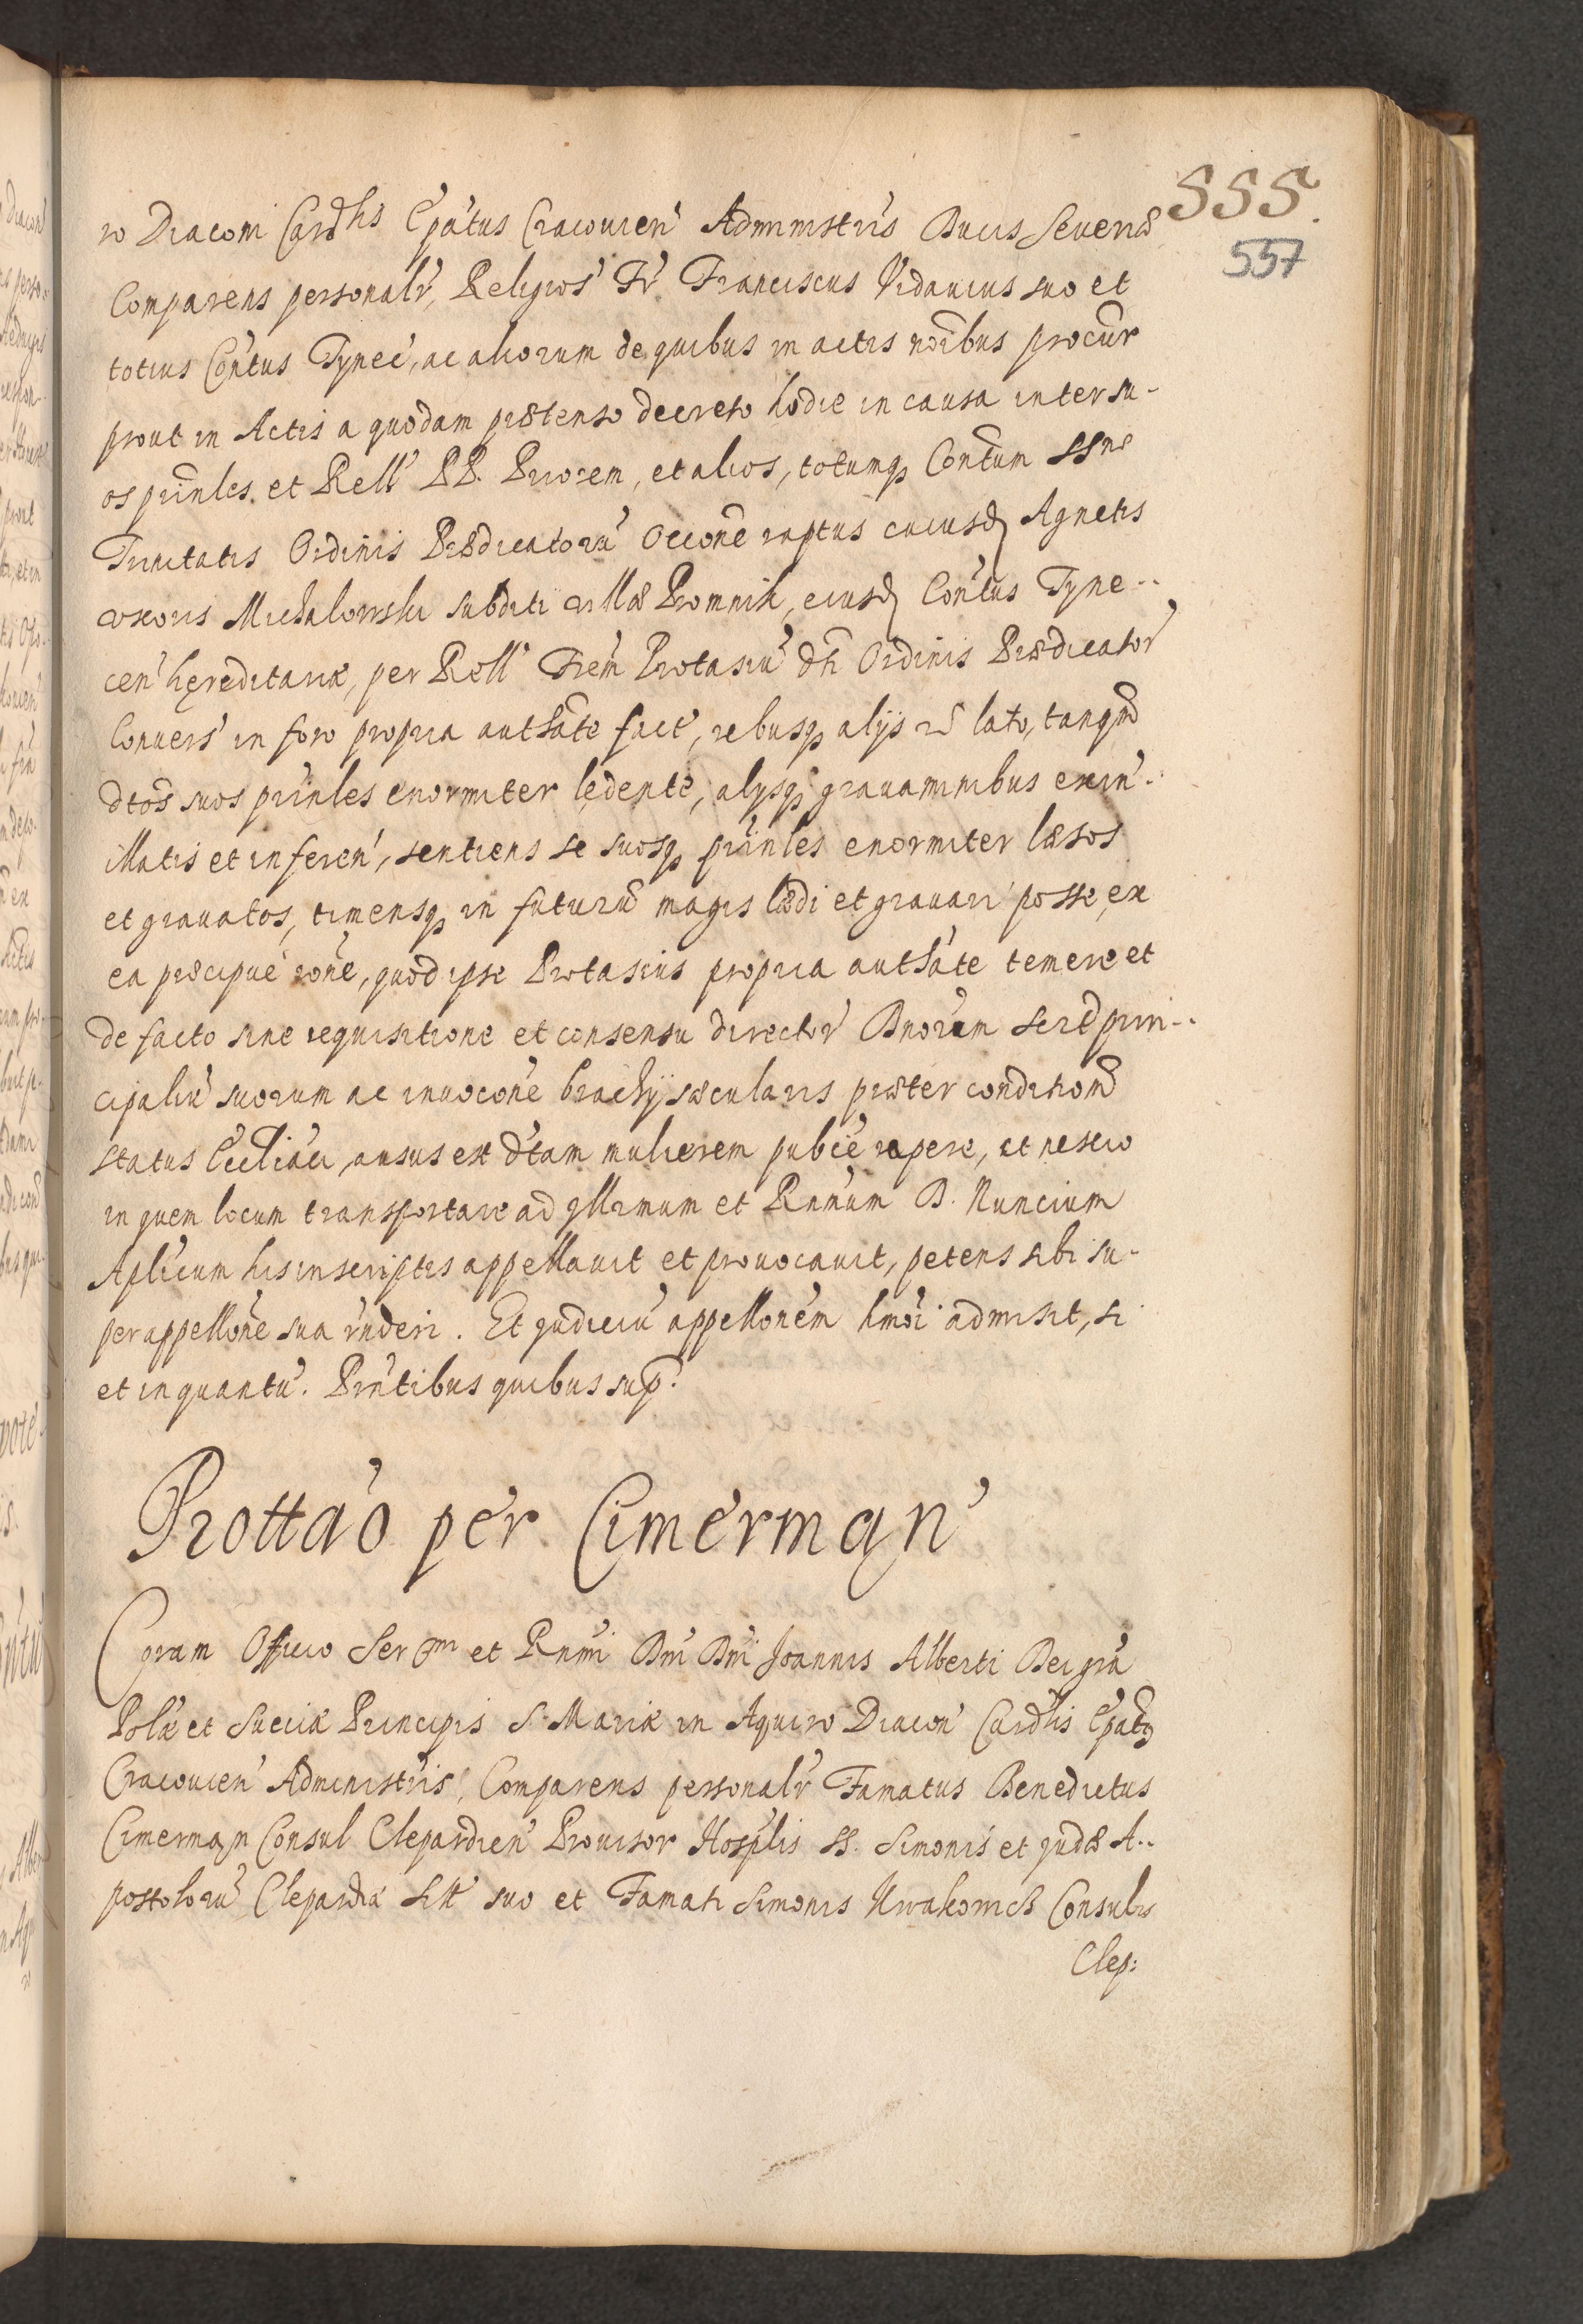 555.
557
ro Diaconi Cardlis Epatus Cracovien Administris Ducis Severiæ
Comparens personalr, Religios Fr Franciscus Vidavius suo et
totius Contus Tynec, ac aliorum de quibus in actis noibus procur
prout in Actis a quodam prætenso decreto hodie in causa inter su-
os prinles et Rell PP. Priorem, et alios, totumq Contum SSnæ
Trinitatis Ordinis Prædicatoru occone raptus cuiusd Agnetis
uxoris Michalowski subditi villæ Promnik, eiusd Contus Tyne-
cen hęreditariæ, per Rell Frem Protasiu dti Ordinis Prædicator
Convers in foro propria authate fact, rebusq alijs lato, tanqm
dtos suos prinles enormiter lędente, alijsq gravaminibus exin
illatis et inferen, sentiens se suosq prinles enormiter læsos
et gravatos, timensq in futuru magis lædi et gravari posse, ex
ea præcipue rone, quod ipse Protasius propria authate temere et
de facto sine requisitione et consensu director Dnorum scild prin-
cipaliu suorum ac invocone brachij sæcularis præter conditiom
status Eccliaci, ausus est dtam mulierem publce rapere, et nescio
in quem locum transportare ad Illrmum et Rnmum D. Nuncium
Aplicum his inscriptis appellavit et provocavit, petens sibi su-
per appellone sua rnderi. Et Judiciu appellonem hmoi admisit, si
et inquantu. Printibus quibus sup.
Prottao per Cimerman
Coram Officio Ser et Rnmi Dni Dni Joannis Alberti Dei gra
Polæ et Sueciæ Principis S. Mariæ in Aquiro Diacon Cardlis Epatq
Cracovien Administris, Comparens personalr Famatus Benedictus
Cimerman Consul Clepardien Provisor Hosplis SS. Simonis et Judæ A-
postoloru Clepardiæ sitt suo et Famati Simonis Consulis
Clep: